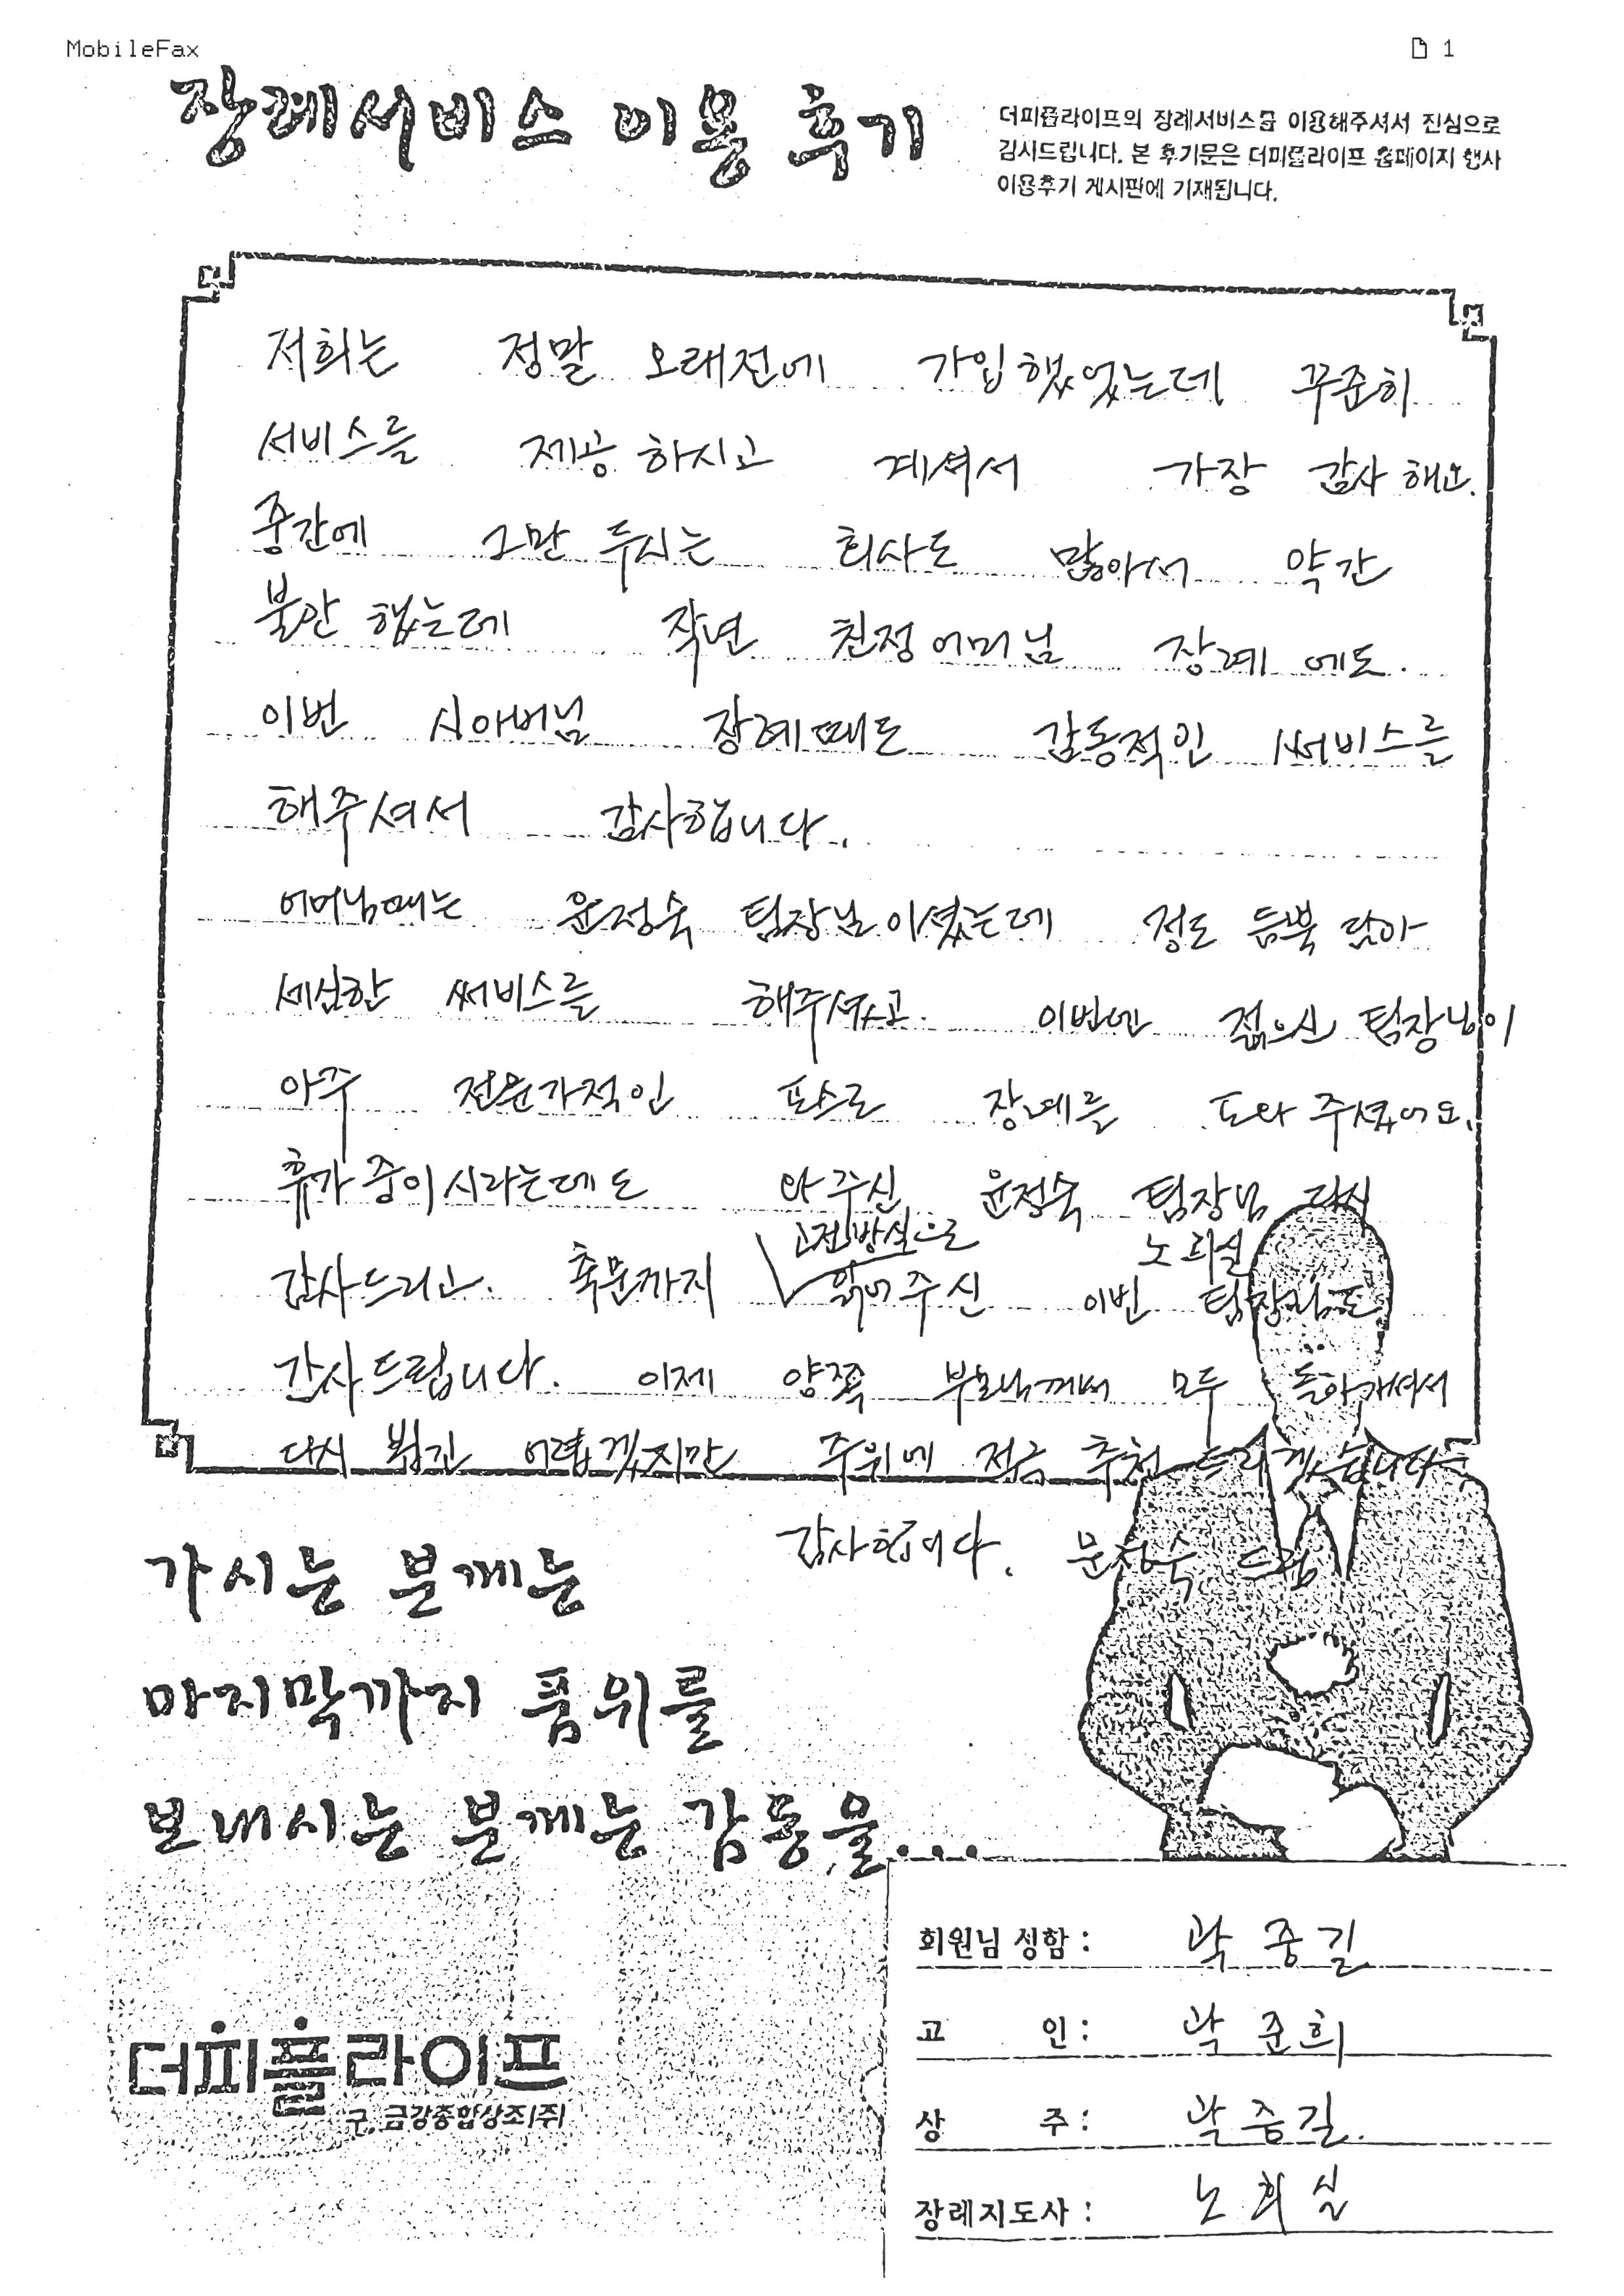 MobileFax
1
장례서비스 이용 후기
더피플라이프의 장례서비스를 이용해주셔서 진심으로
감사드립니다. 본 후기문은 더피플라이프 홈페이지 행사
이용후기 게시판에 기재됩니다.
저희는 정말 오래전에 가입했었는데 꾸준히
서비스를 제공하시고 계셔서 가장 감사해요.
중간에 그만 두시는 회사도 많아서 약간
불안했는데 작년 친정어머님 장례에도.
이번 시아버님 장례때도 감동적인 써비스를
해주셔서 감사합니다.
어머님때는 윤정숙 팀장님이셨는데 정도 듬뿍 담아
세심한 써비스를 해주셨고. 이번엔 젊으신 팀장님이
아주 전문가적인 포스로 장례를 도와 주셨어요.
휴가 중이시라는데도 와 주신 윤정숙 팀장님 다시
고전방식으로 노희실
감사드리고. 축문까지 읽어주신 이번 팀장님도
감사드립니다. 이제 양쪽 부모님께서 모두 돌아가셔서
다시 뵙긴 어렵겠지만 주위에 적극 추천 드리겠습니다
감사합니다. 드림
가시는 분께는
마지막까지 품위를
보내시는 분께는 감동을...
더피플라이프
구. 금강종합상조(주)
회원님 성함 : 곽중길
고 인 : 곽준희
상 주 : 곽중길.
장례지도사 : 노희실